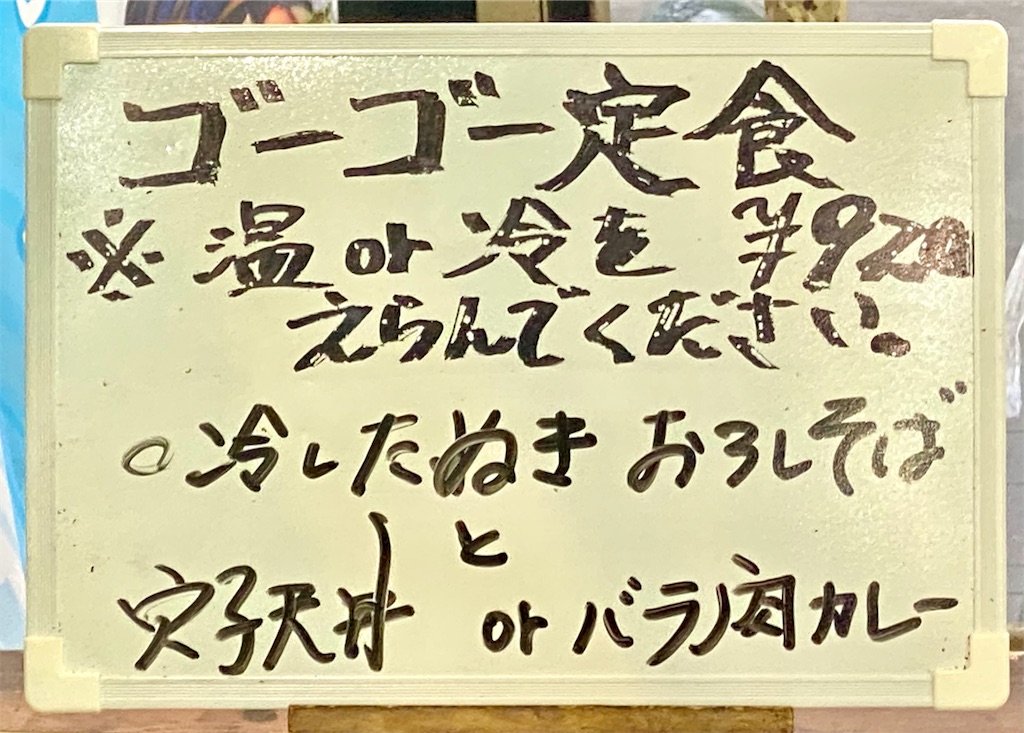 ゴーゴー定食
※温or冷を ¥920
えらんでください。
○冷したぬき おろしそば
と
穴子天丼 or バラ肉カレー